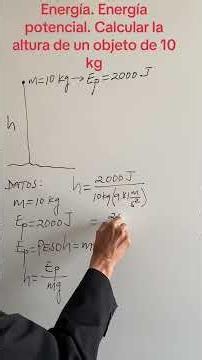 Energía. Energía
potencial. Calcular la
altura de un objeto de 10
kg
m=10 kg → Ep = 2000 J
h
DATOS:
m = 10 kg
Ep = 2000 J
Ep = PESO h = m
h = Ep / mg
h = 2000 J / 10 kg (9.81 m/s²)
=